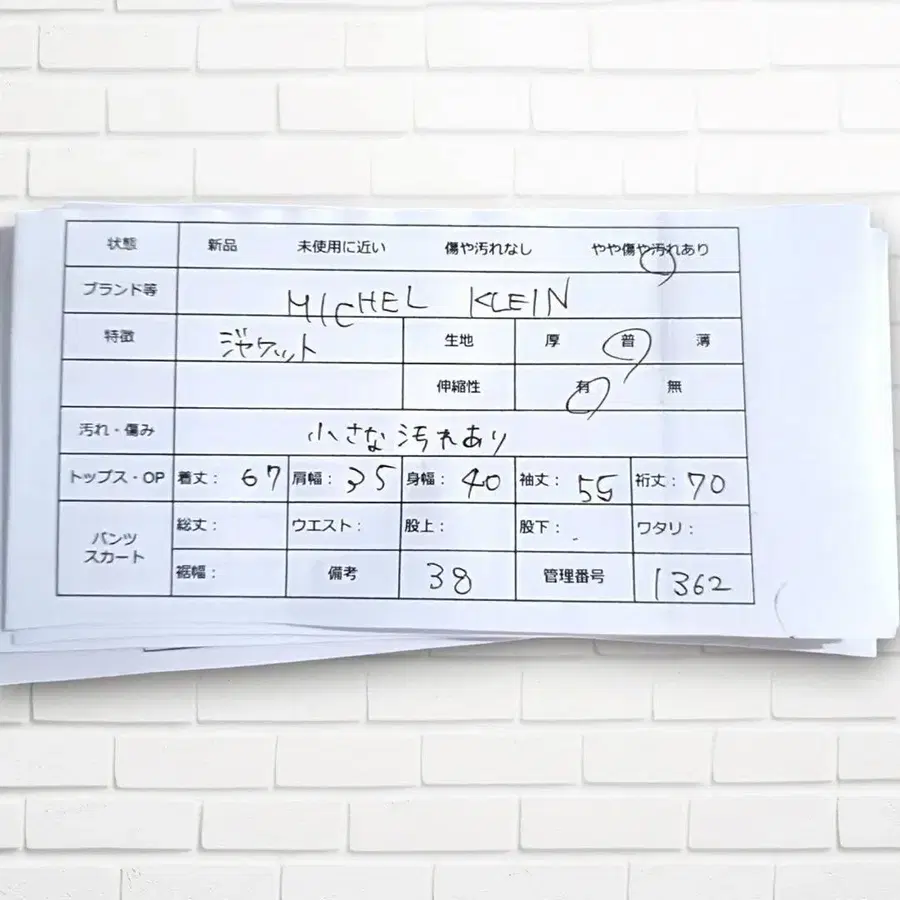 状態 新品 未使用に近い 傷や汚れなし やや傷や汚れあり
ブランド等 MICHEL KLEIN
特徴 ジャケット 生地 厚 普 薄
伸縮性 有 無
汚れ・傷み 小さな汚れあり
トップス・OP 着丈: 67 肩幅: 35 身幅: 40 袖丈: 55 裄丈: 70
パンツ スカート 総丈: ウエスト: 股上: 股下: ワタリ:
裾幅: 備考 38 管理番号 1362